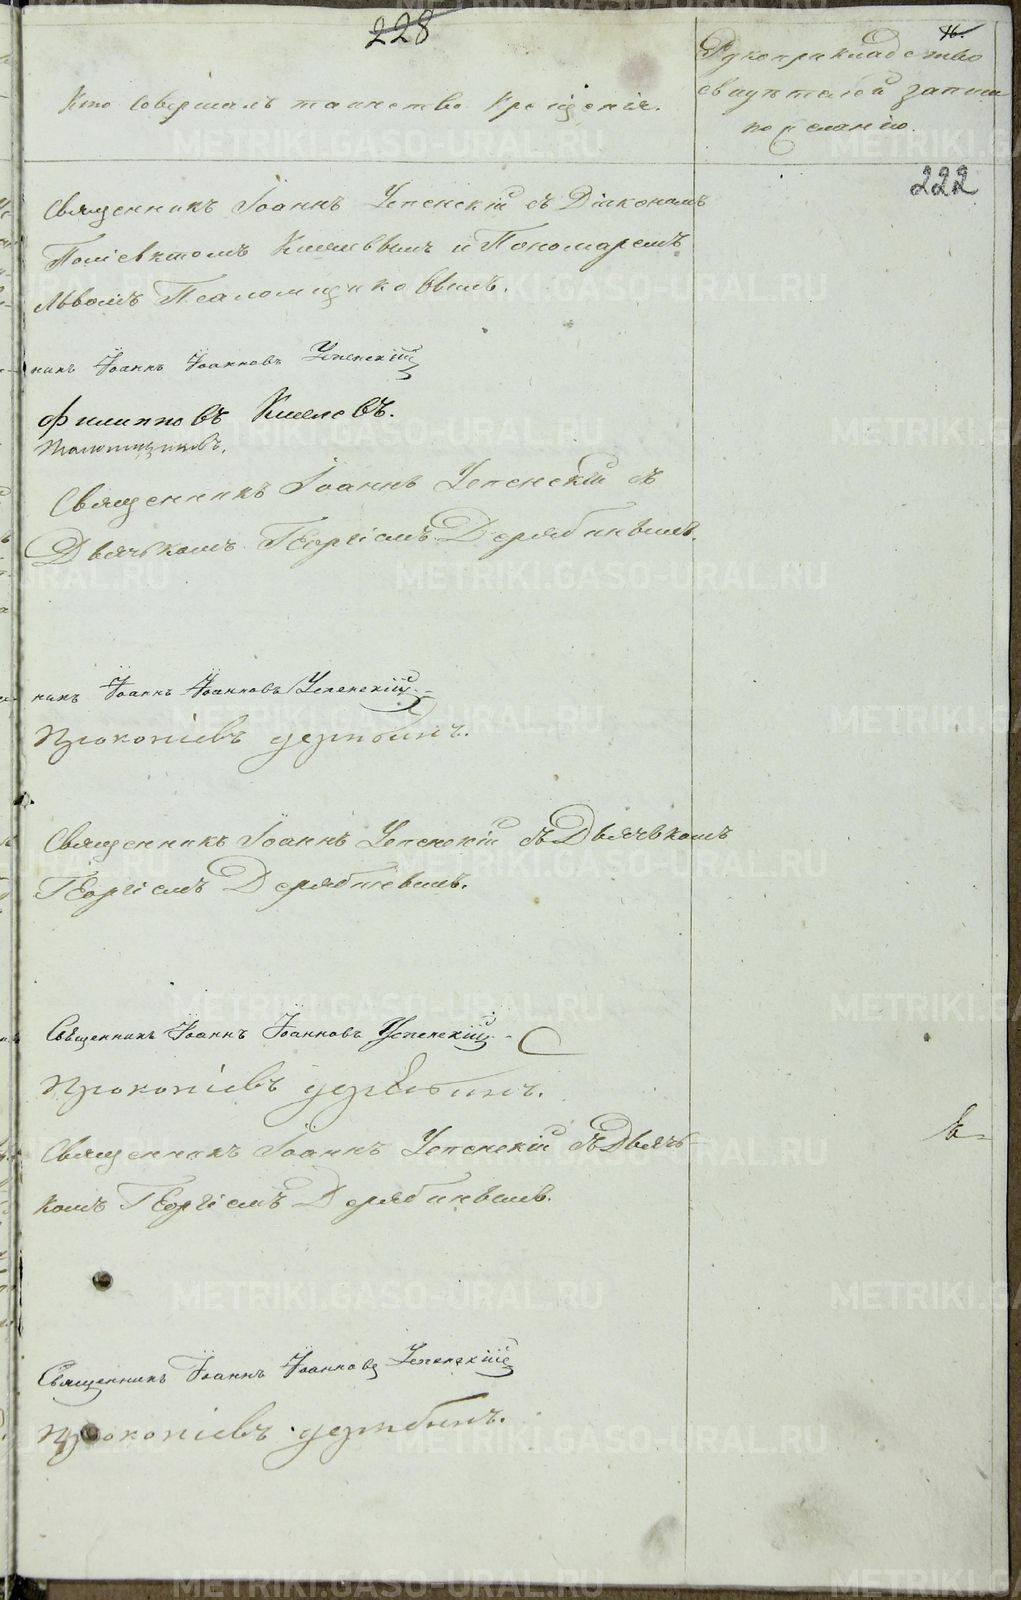 228
16.
Кто Совершалъ таинство Крещенія.
Рукоприкладство
свидѣтелей записи
по желанію.
222
Священникъ Іоаннъ Успенскій съ Діакономъ
Поліевктомъ Киселевымъ и Пономаремъ
Львомъ Псаломщиковымъ.
никъ Іоаннъ Іоанновъ Успенскій
Филипповъ Киселевъ.
Священникъ Іоаннъ Успенскій съ
Дьячькомъ Георгіемъ Дерябинымъ.
никъ Іоаннъ Іоанновъ Успенскій
Прокопіевъ Дерябинъ.
Священникъ Іоаннъ Успенскій съ Дьячькомъ
Георгіемъ Дерябинымъ.
Священникъ Іоаннъ Іоанновъ Успенскій
Прокопіевъ Дерябинъ.
Священникъ Іоаннъ Успенскій съ Дьячь
комъ Георгіемъ Дерябинымъ.
Священникъ Іоаннъ Іоанновъ Успенскій
Прокопіевъ Дерябинъ.
METRIKI.GASO-URAL.RU